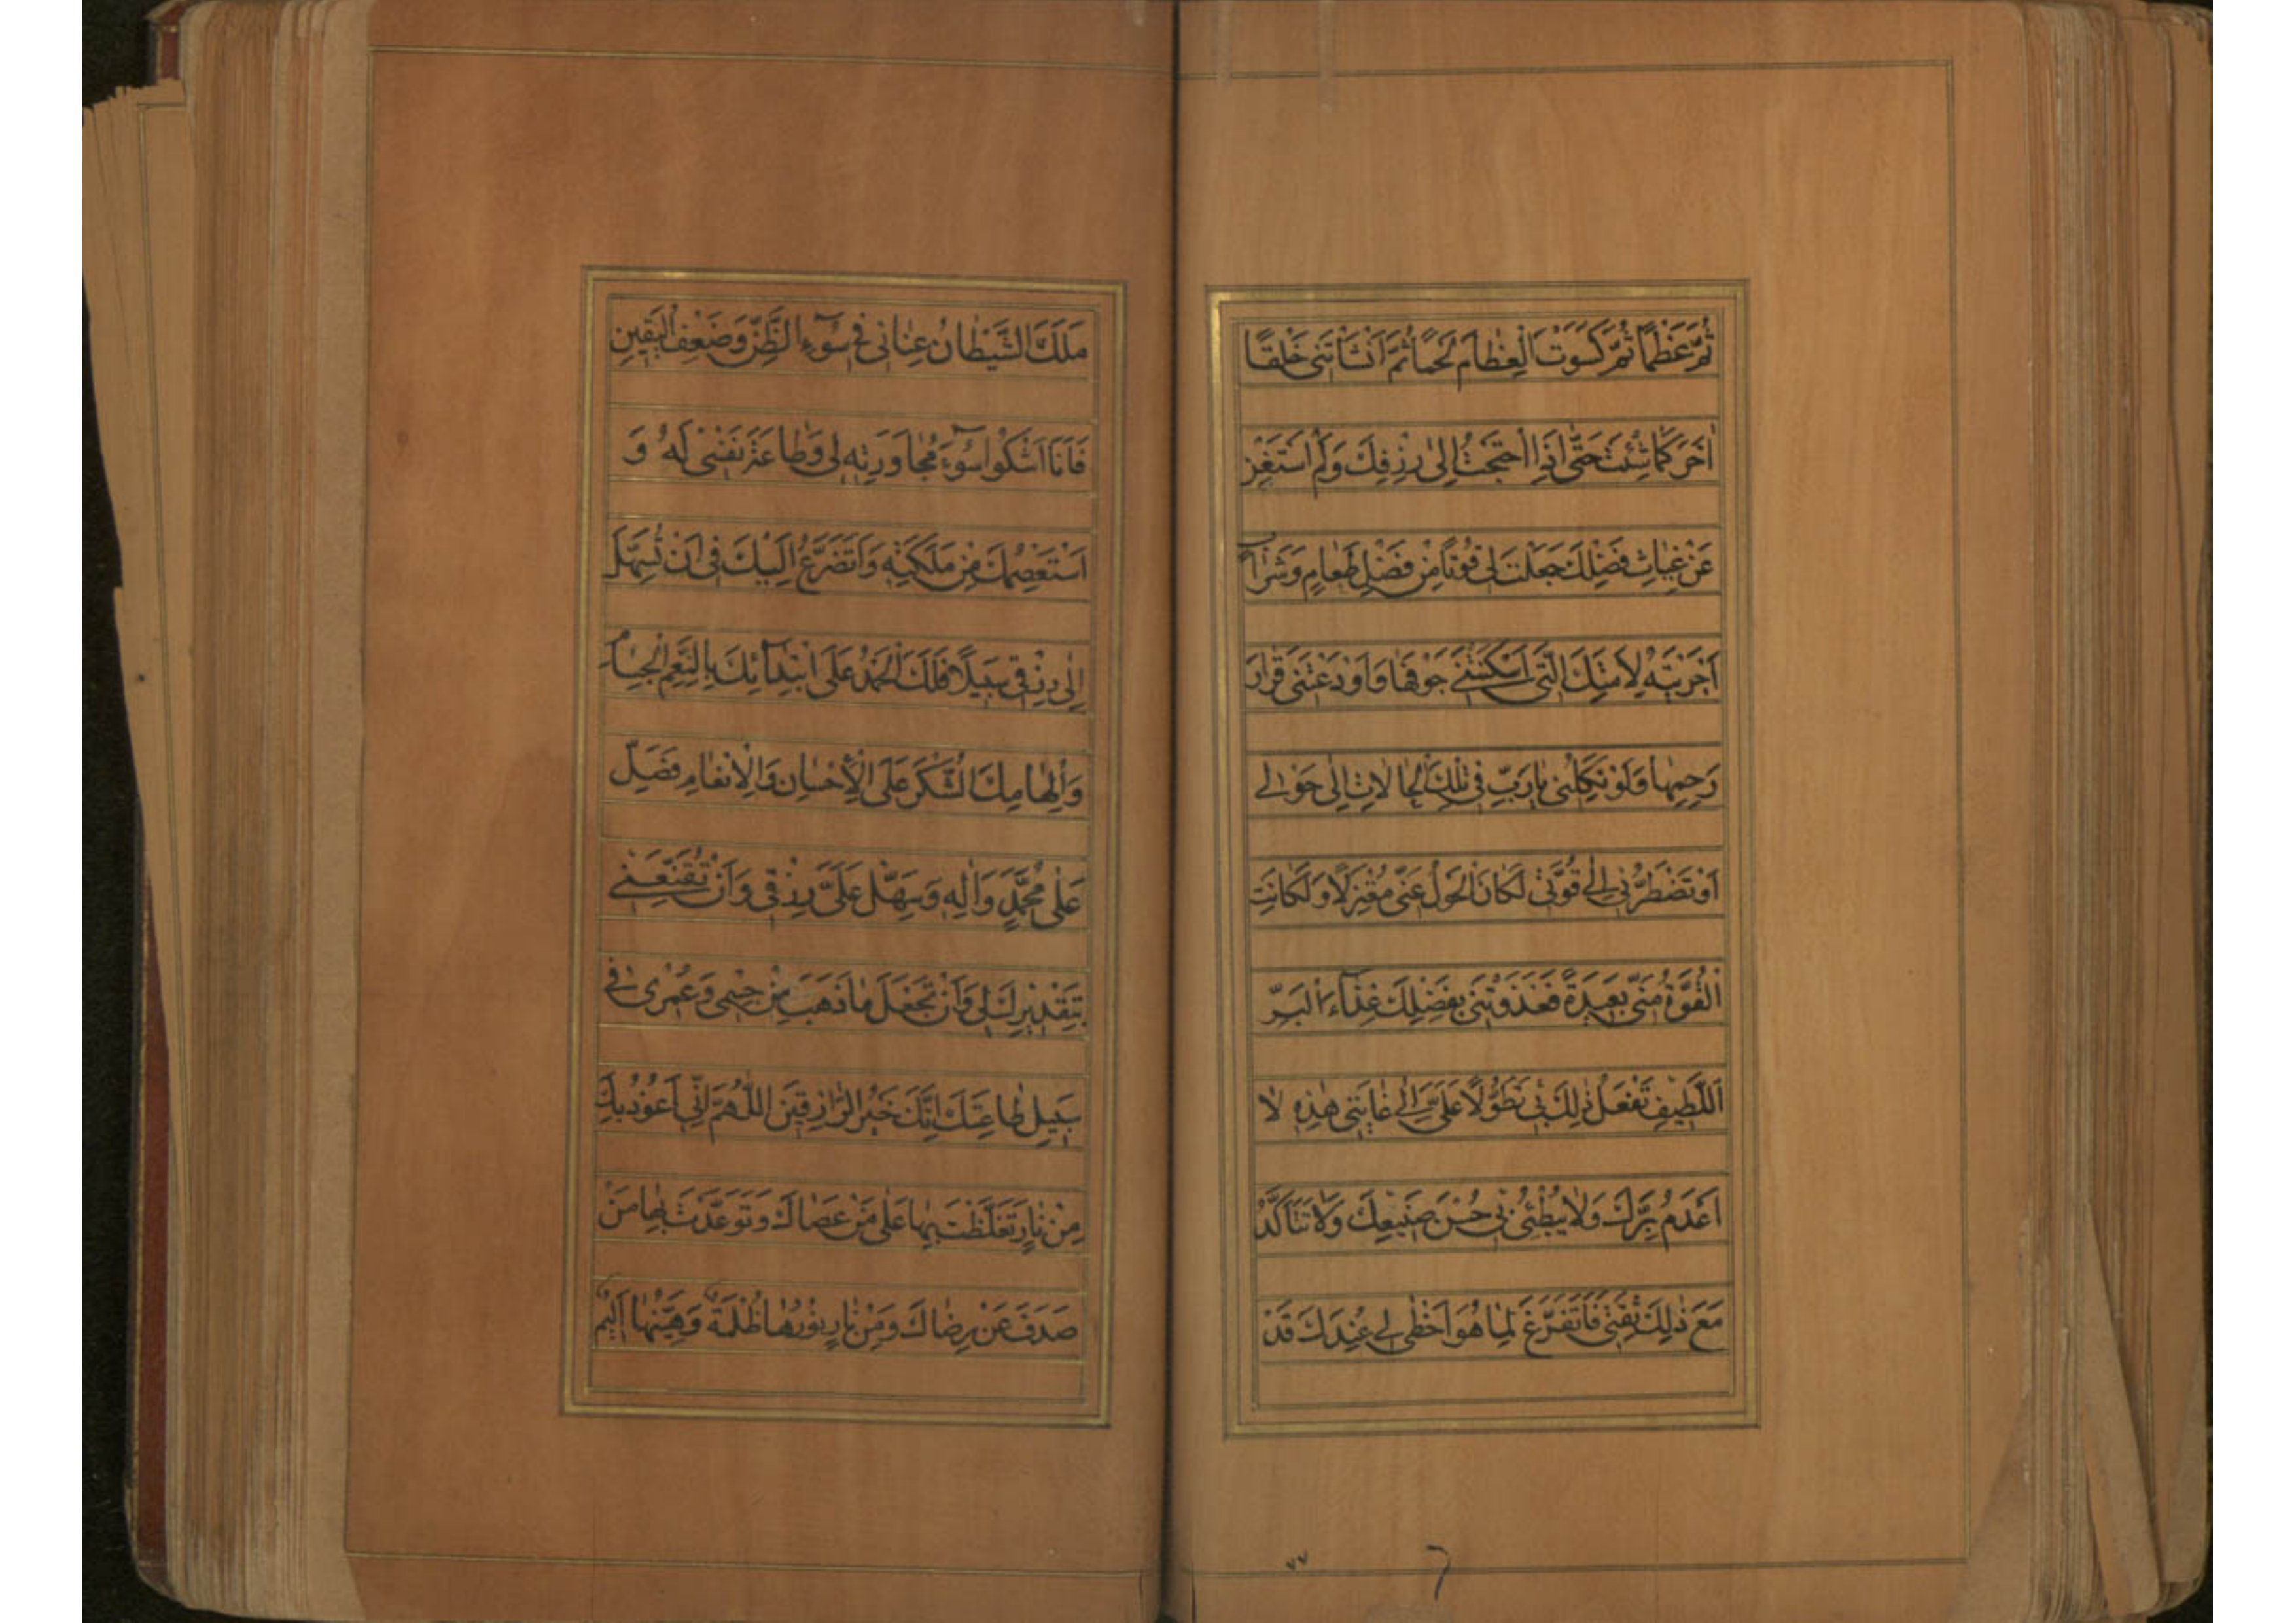 ثُمَّ عَظْمًا ثُمَّ كَسَوْتَ الْعِظَامَ لَحْمًا ثُمَّ اَنْشَأْتَنِى خَلْقًا
اٰخَرَ كَمَا شِئْتَ حَتّٰى اِذَا احْتَجْتُ اِلٰى رِزْقِكَ وَلَمْ اَسْتَغْنِ
عَنْ غِيَاثِ فَضْلِكَ جَعَلْتَ لِى قُوتًا مِنْ فَضْلِ طَعَامٍ وَشَرَابٍ
اَجْرَيْتَهُ لِاَمَتِكَ الَّتِى اَسْكَنْتَنِى جَوْفَهَا وَاَوْدَعْتَنِى قَرَارَ
رَحِمِهَا وَلَوْ تَكِلُنِى يَا رَبِّ فِى تِلْكَ الْحَالَاتِ اِلٰى حَوْلِى
اَوْ تَضْطَرُّنِى اِلٰى قُوَّتِى لَكَانَ الْحَوْلُ عَنِّى مُعْتَزِلًا وَلَكَانَتِ
الْقُوَّةُ مِنِّى بَعِيدَةً فَغَذَوْتَنِى بِفَضْلِكَ غِذَاءَ الْبَرِّ
اللَّطِيفِ تَفْعَلُ ذٰلِكَ بِى تَطَوُّلًا عَلَىَّ اِلٰى غَايَتِى هٰذِهِ لَا
اَعْدَمُ بِرَّكَ وَلَا يُبْطِئُ بِى حُسْنُ صَنِيعِكَ وَلَا تَتَاَكَّدُ
مَعَ ذٰلِكَ ثِقَتِى فَاَتَفَرَّغَ لِمَا هُوَ اَحْظٰى لِى عِنْدَكَ قَدْ
٧٧
مَلَكَ الشَّيْطَانُ عِنَانِى فِى سُوٓءِ الظَّنِّ وَضَعْفِ الْيَقِينِ
فَاَنَا اَشْكُوا سُوٓءَ مُجَاوَرَتِهِ لِى وَطَاعَةَ نَفْسِى لَهُ وَ
اَسْتَعْصِمُكَ مِنْ مَلَكَتِهِ وَاَتَضَرَّعُ اِلَيْكَ فِى اَنْ تُسَهِّلَ
اِلٰى رِزْقِى سَبِيلًا فَلَكَ الْحَمْدُ عَلَى ابْتِدَآئِكَ بِالنِّعَمِ الْجِسَامِ
وَاِلْهَامِكَ الشُّكْرَ عَلَى الْاِحْسَانِ وَالْاِنْعَامِ فَصَلِّ
عَلٰى مُحَمَّدٍ وَاٰلِهِ وَسَهِّلْ عَلَىَّ رِزْقِى وَاَنْ تُقَنِّعَنِى
بِتَقْدِيرِكَ لِى وَاَنْ تَجْعَلَ مَا ذَهَبَ مِنْ جِسْمِى وَعُمْرِى فِى
سَبِيلِ طَاعَتِكَ اِنَّكَ خَيْرُ الرَّازِقِينَ اللّٰهُمَّ اِنِّى اَعُوذُ بِكَ
مِنْ نَارٍ تَغَلَّظْتَ بِهَا عَلٰى مَنْ عَصَاكَ وَتَوَعَّدْتَ بِهَا مَنْ
صَدَفَ عَنْ رِضَاكَ وَمِنْ نَارٍ نُورُهَا ظُلْمَةٌ وَهَيِّنُهَا اَلِيمٌ